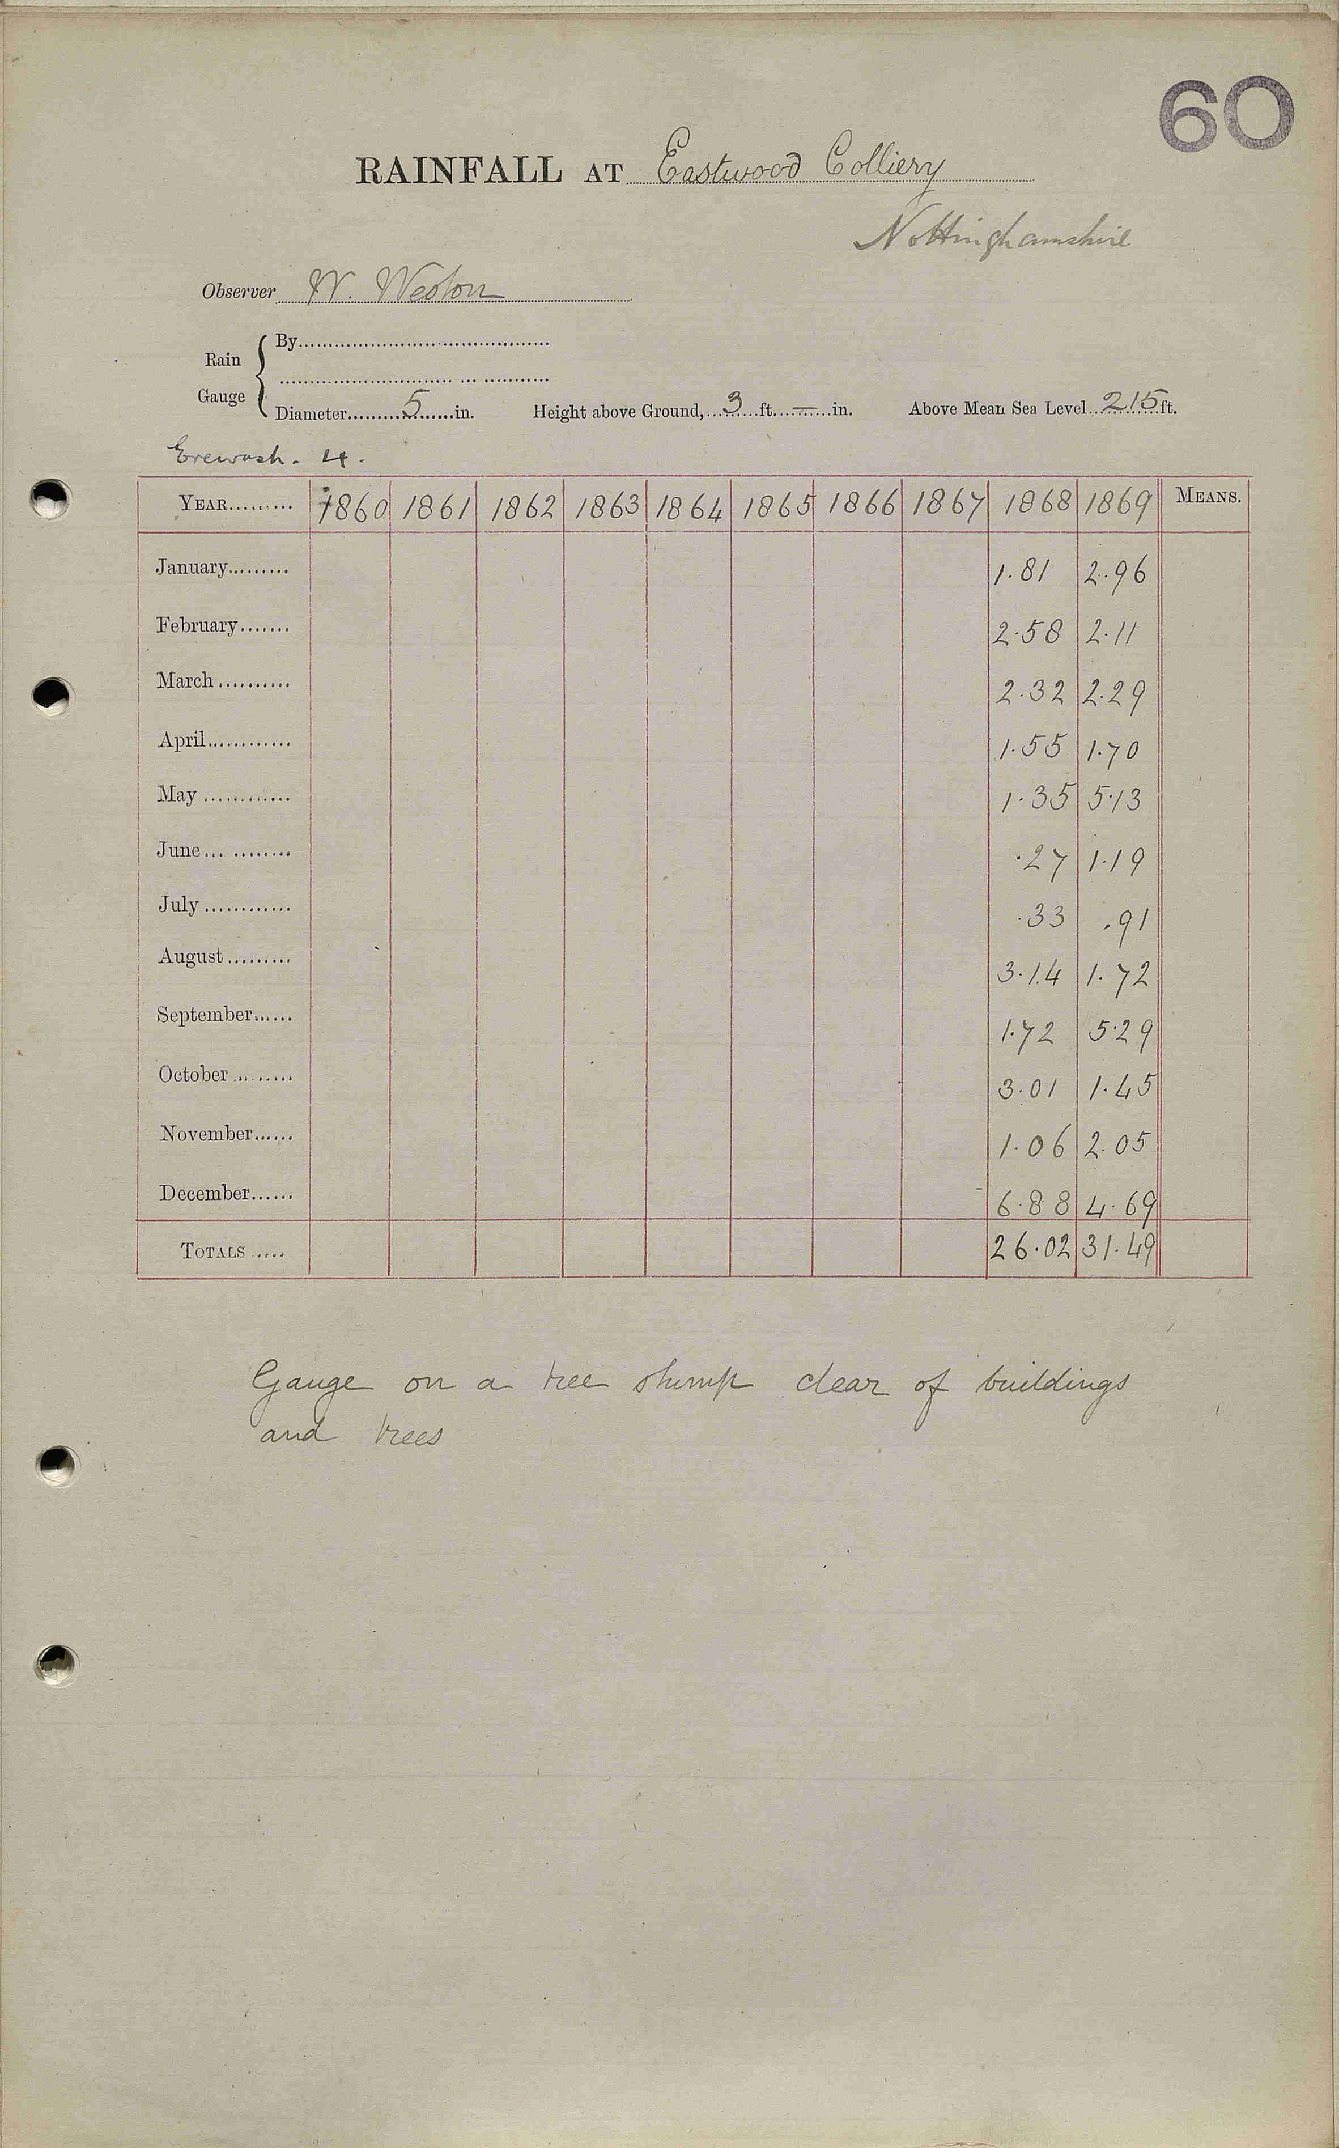 60
RAINFALL AT Eastwood Colliery
Nottinghamshire
Observer W. Weston
By
Rain
Gauge
Diameter 5 in. Height above Ground, 3 ft. — in. Above Mean Sea Level 215 ft.
Erewash. 4.
YEAR 1860 1861 1862 1863 1864 1865 1866 1867 1868 1869 MEANS.
January 1.81 2.96
February 2.58 2.11
March 2.32 2.29
April 1.55 1.70
May 1.35 5.13
June .27 1.19
July .33 .91
August 3.14 1.72
September 1.72 5.29
October 3.01 1.45
November 1.06 2.05
December 6.88 4.69
TOTALS 26.02 31.49
Gauge on a tree stump clear of buildings
and trees